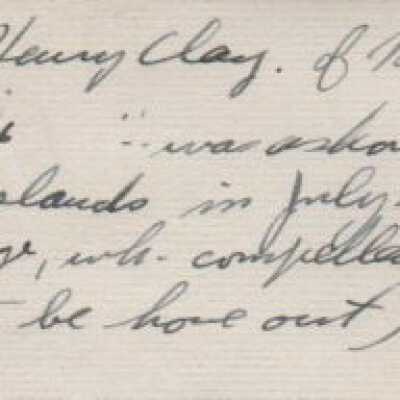 Henry Clay. of N
" was ashor
slands in July
ge, wh. compelle
be hove out)